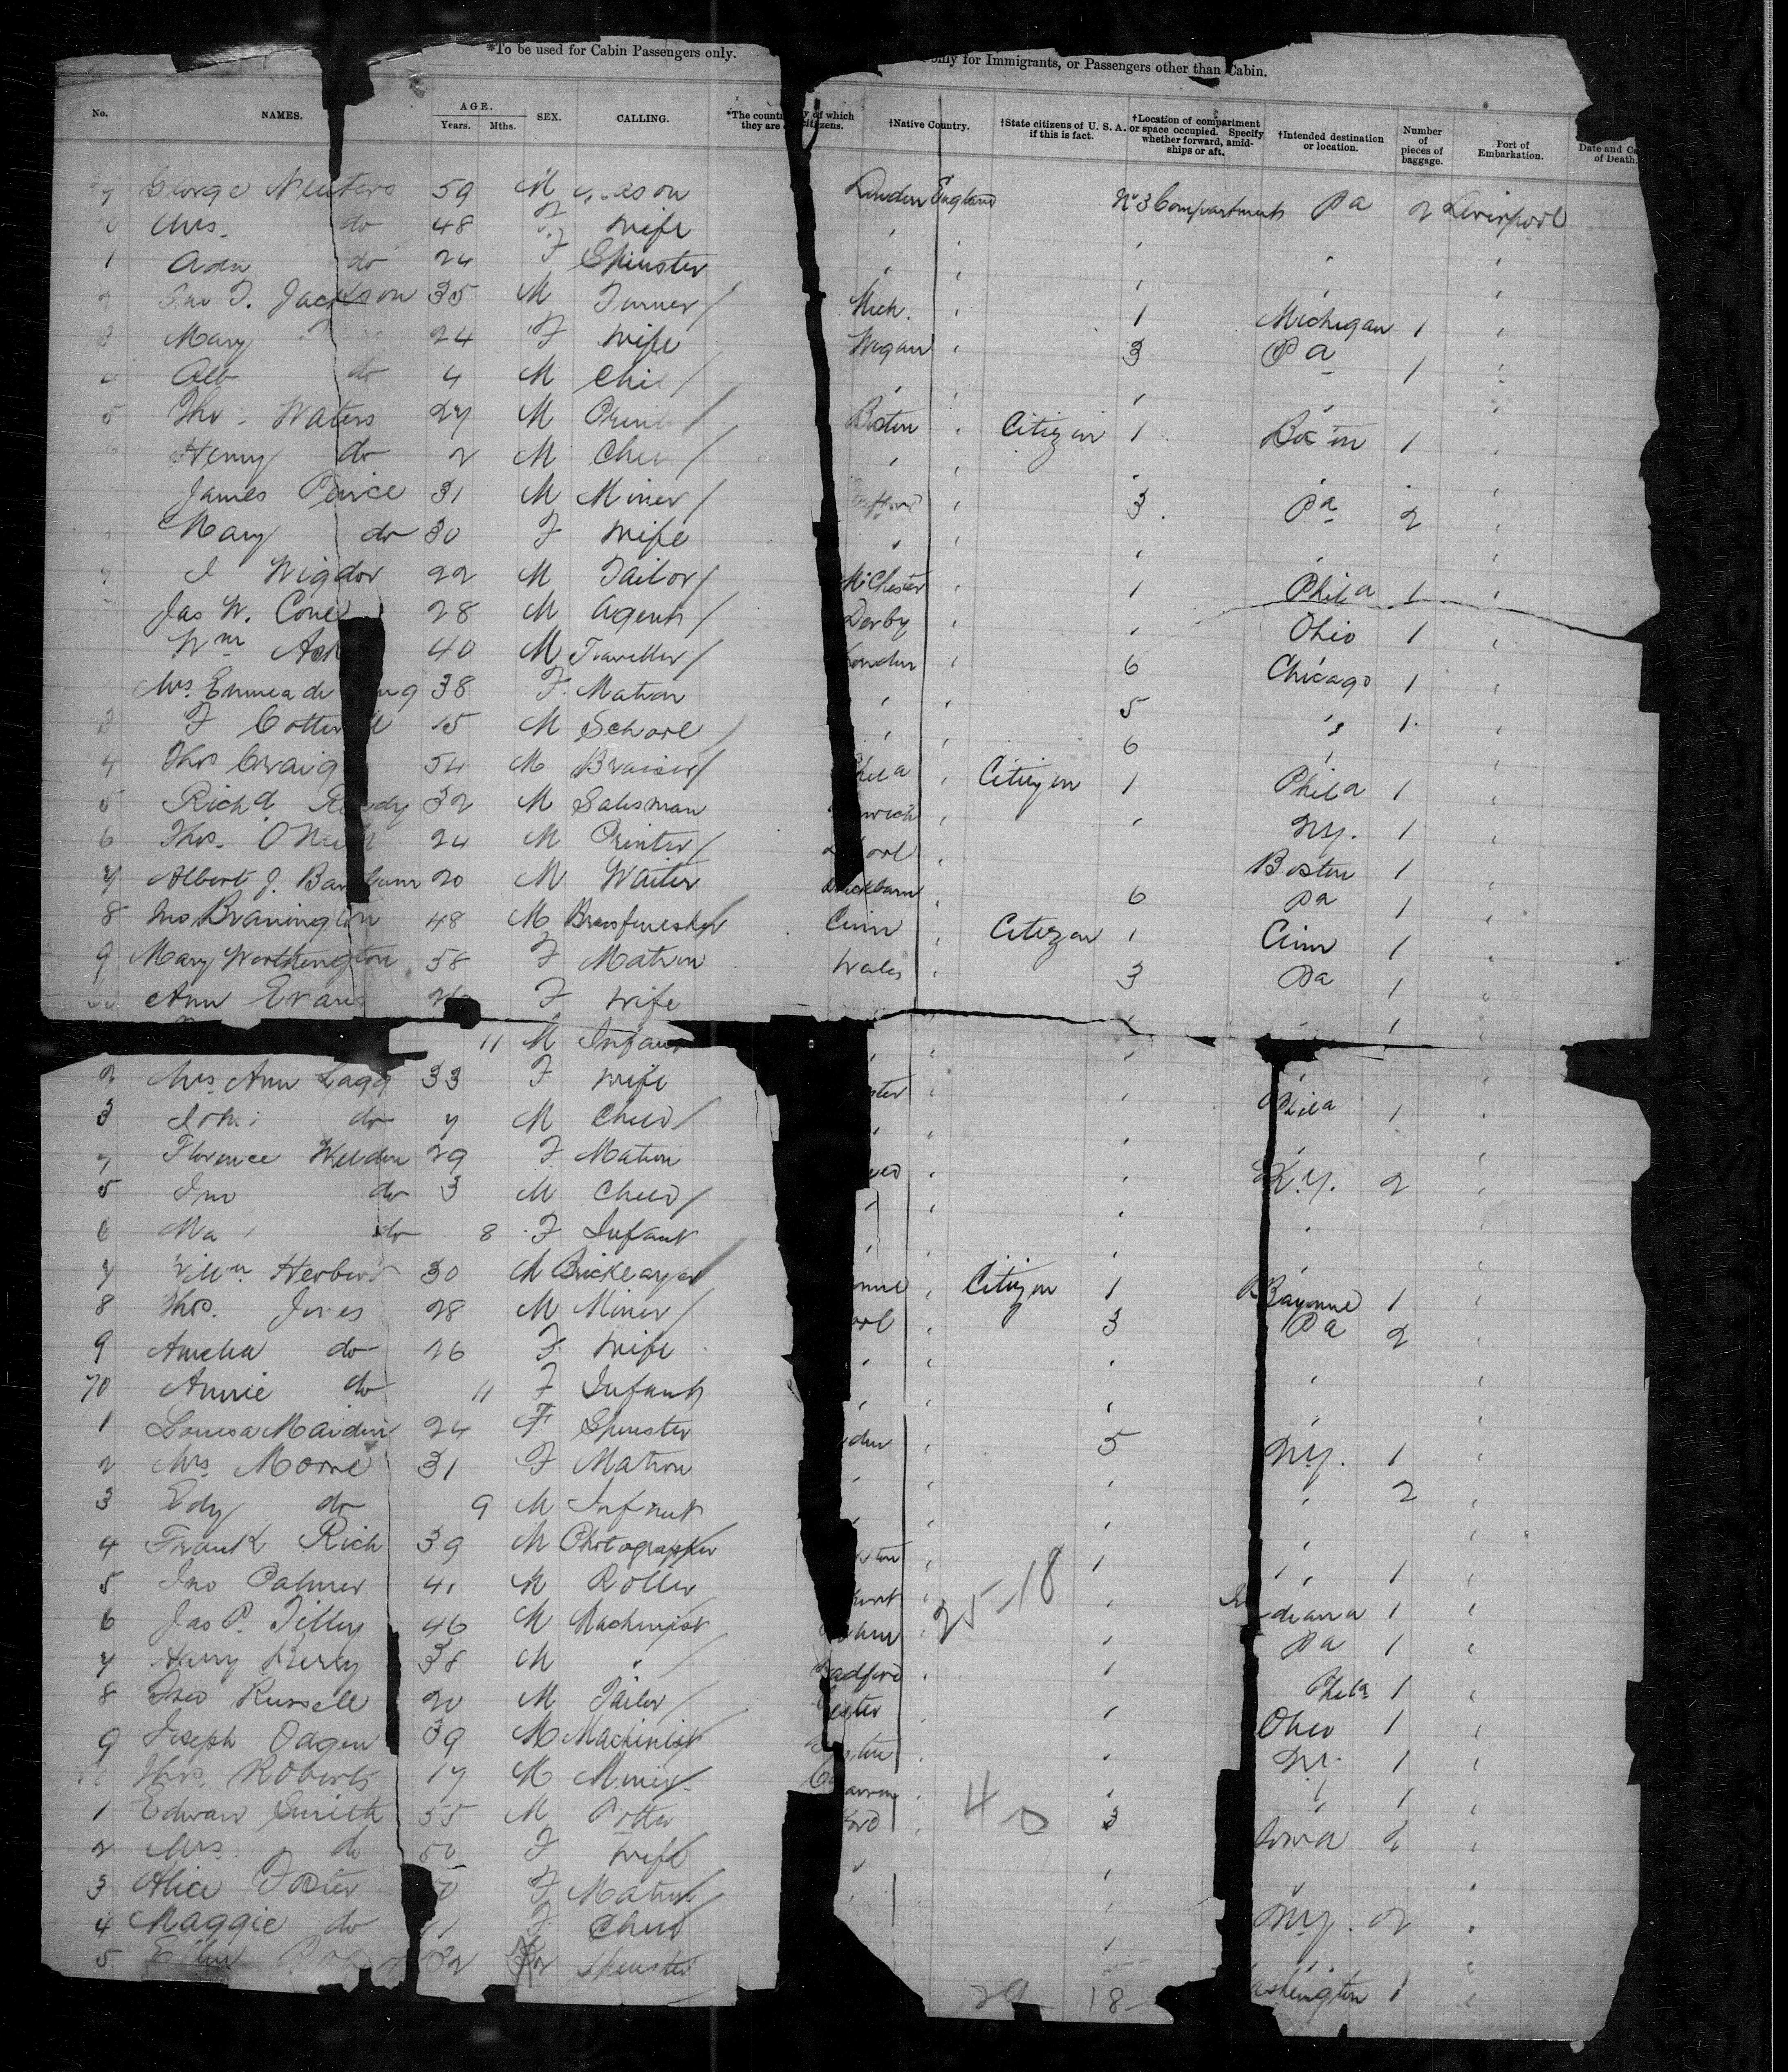 *To be used for Cabin Passengers only. only for Immigrants, or Passengers other than Cabin.
No. NAMES. AGE. Years. Mths. SEX. CALLING. *The country of which they are citizens. †Native Country. †State citizens of U. S. A. if this is fact. †Location of compartment or space occupied. Specify whether forward, amidships or aft. †Intended destination or location. Number of pieces of baggage. Port of Embarkation. Date and Ca of Death.
George 59 M Mason London England No 3 Compartment Pa 2 Liverpool
Mrs. do 48 F Wife " " " " "
1 Ada do 24 F Spinster " " " " "
2 Jno T. Jackson 35 M Turner Mich. " 1 Michigan 1 "
3 Mary " 24 F Wife Wigan " 3 Pa 1 "
4 Alb do 4 M Chil " " " " "
5 Tho. Waters 27 M Print Boston " Citizen 1 Bos on 1 "
Henry do 2 M Chil " " " " "
James Peirce 31 M Miner " 3 Pa 2 "
Mary do 30 F Wife " " " " "
I Wigdor 22 M Tailor M'Chester " 1 Phila 1 "
Jas W. Cone 28 M Agent Derby " " Ohio 1 "
Wm Ash 40 M Traveller London " 6 Chicago 1 "
Mrs. Emma de ng 38 F Matron " " 5 " 1 "
3 F Cotter ll 15 M School " " 6 " "
4 Thos Craig 54 M Brasier Phila " Citizen 1 Phila 1 "
5 Richd dy 32 M Salesman wich " " N.Y. 1 "
6 Thos. O'Nei 24 M Printer L'pool " Boston 1 "
7 Albert J. Bar 20 M Waiter Blackburn " 6 Pa 1 "
8 Jno Branington 48 M Brassfinisher Cinn " Citizen 1 Cinn 1 "
9 Mary Worthington 58 F Matron Wales " 3 Pa 1 "
Ann Evans 26 F Wife " " " " 1 "
11 M Infant " " " " "
2 Mrs. Ann Lagg 33 F Wife ster " " Phila 1 "
3 John do 7 M Child " " " " "
4 Florence Weldon 29 F Matron " " K.Y. 2 "
5 Jno do 3 M Child " " " " "
6 Ma do 8 F Infant " " " " "
7 Willm Herbert 30 M Bricklayer onne " Citizen 1 Bayonne 1 "
8 Thos. Jones 28 M Miner ool " 3 Pa 2 "
9 Amelia do 26 F Wife " " " " "
70 Annie do 11 F Infant " " " " "
1 Louisa Maiden 24 F Spinster don " 5 N.Y. 1 "
2 Mrs. Moore 31 F Matron " " " " 2 "
3 Edy do 9 M Infant " " " " "
4 Frank Rich 39 M Photographer " 1 " 1 "
5 Jno Palmer 41 M Roller " " Indiana 1 "
6 Jas P. Tilley 46 M Machinist ham " " Pa 1 "
7 Harry Berry 38 M " Bradford " 1 Phila 1 "
8 Theo Russell 20 M Tailor ester " Ohio 1 "
9 Joseph Odgen 39 M Machinist " " N.Y. 1 "
Thos. Roberts 17 M Miner " " " 1 "
1 Edward Smith 55 M Potter ford " 3 Iowa 2 "
2 Mrs. do 50 F Wife " " " "
3 Alice Foster F Matron " " N.Y. 2 "
4 Maggie do 11 F Child " "
5 32 Spinster ashington 1 "
25-18
40
29 18